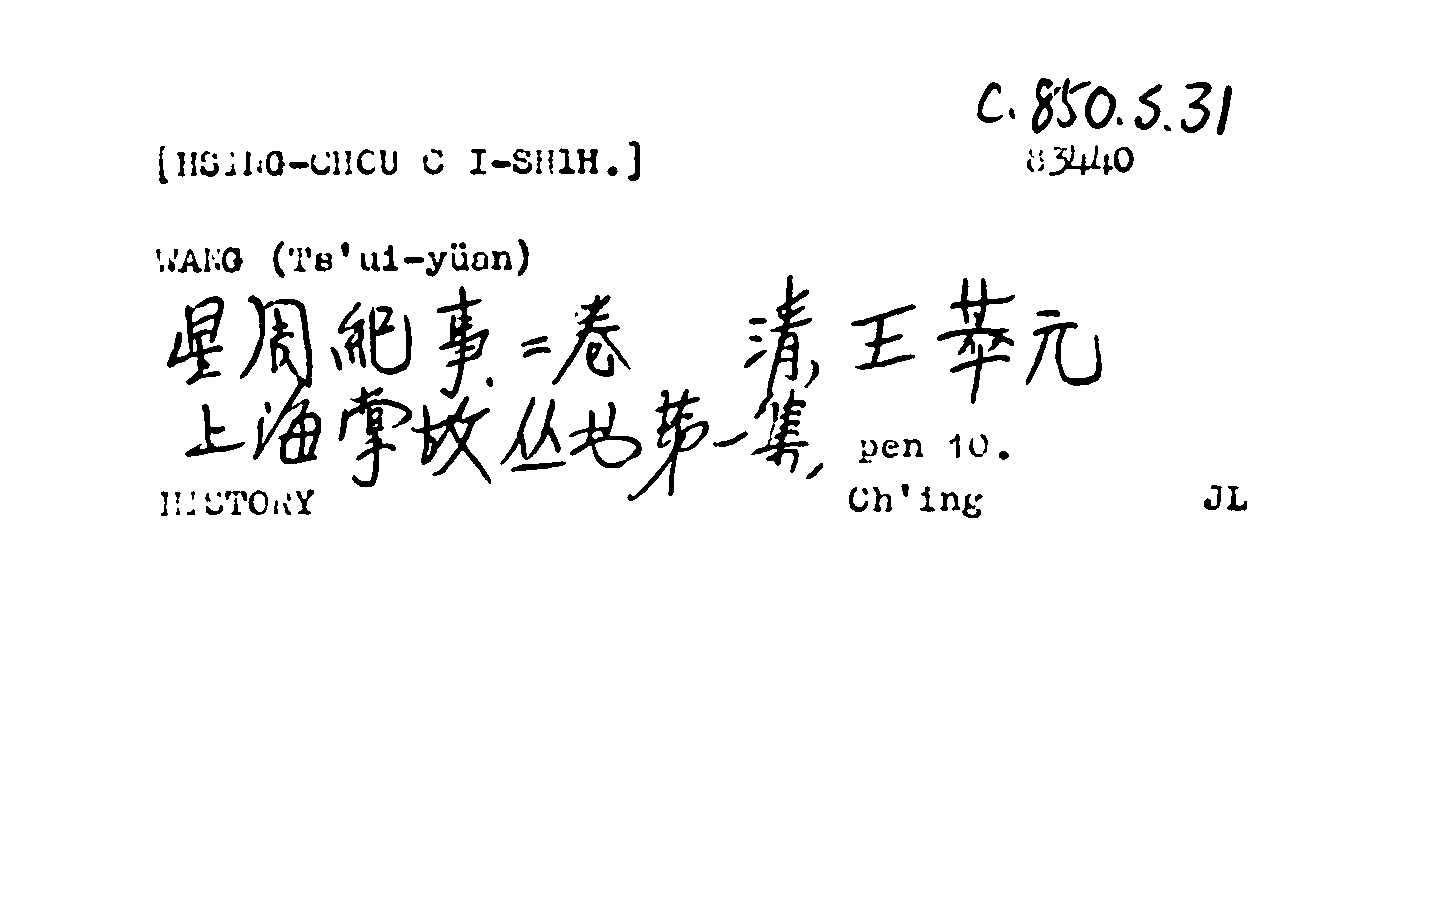 C.850.S.31
[HSING-CHCU C I-SHIH.] 83440
WANG (Ts'ui-yüan)
星周紀事二卷 清, 王萃元
上海掌故丛书第一集, pen 10.
HISTORY Ch'ing JL